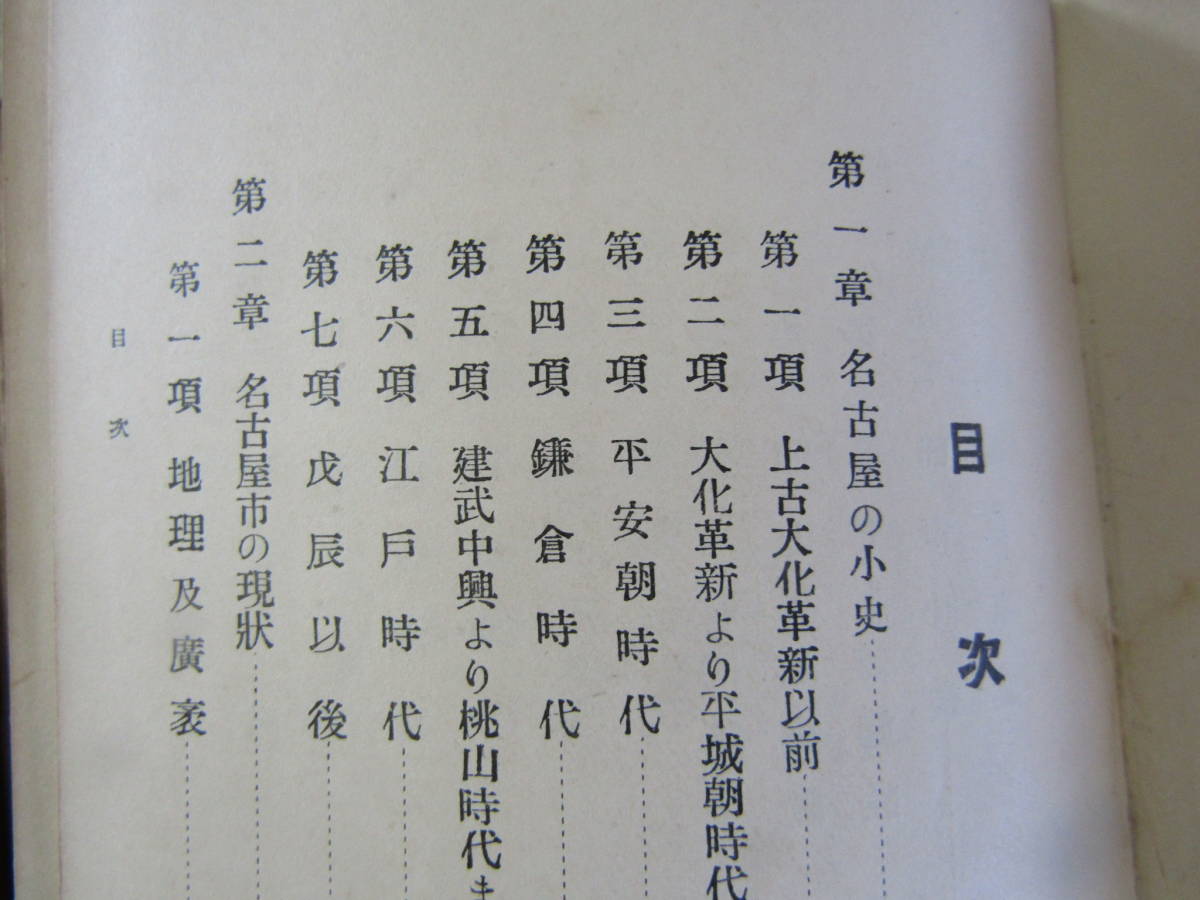 目次
第一章 名古屋の小史
第一項 上古大化革新以前
第二項 大化革新より平城朝時代
第三項 平安朝時代
第四項 鎌倉時代
第五項 建武中興より桃山時代ま
第六項 江戸時代
第七項 戊辰以後
第二章 名古屋市の現狀
第一項 地理及廣袤
目次